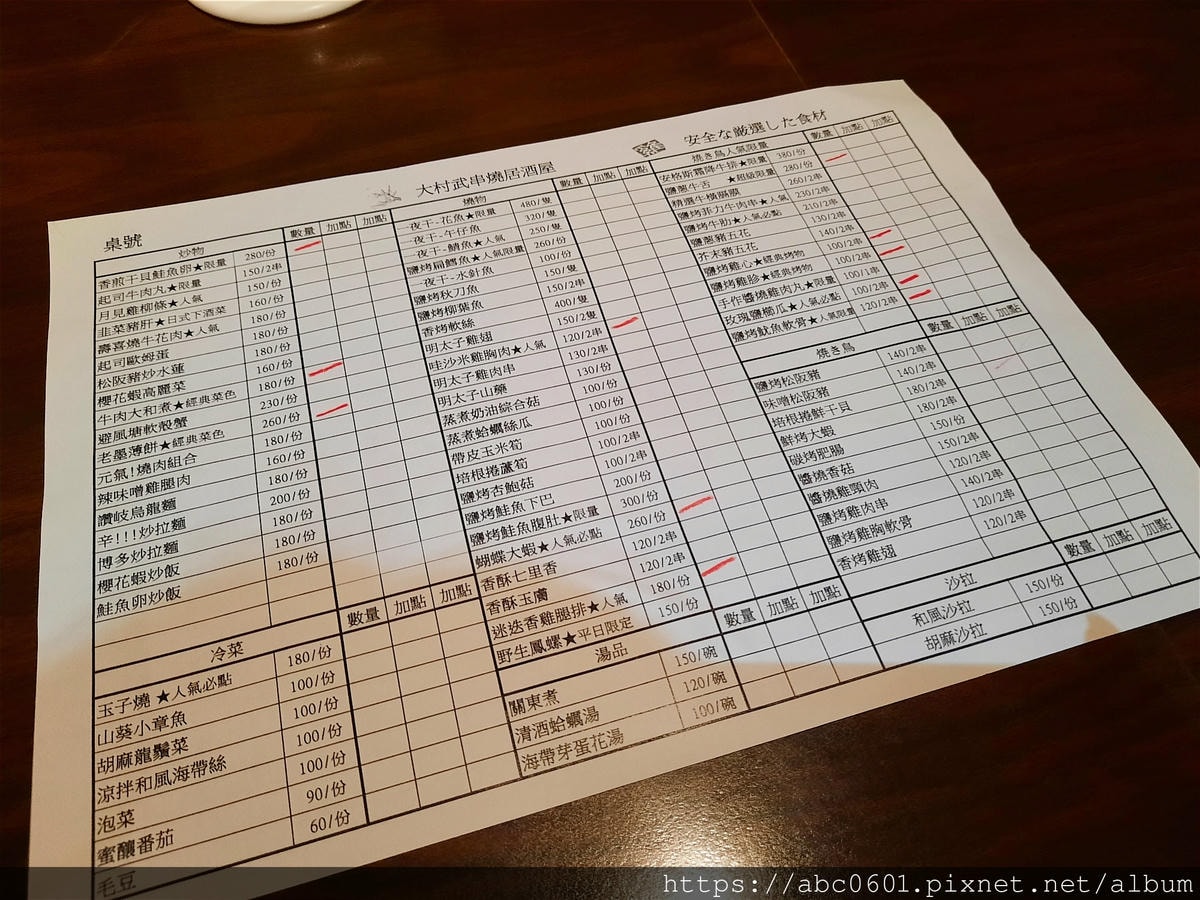 大村武串燒居酒屋
安全な厳選した食材
桌號
炒物 數量 加點 加點
香煎干貝鮭魚卵★限量 280/份
起司牛肉丸★限量 150/2串
月見雞柳條★人氣 150/份
韭菜豬肝★日式下酒菜 160/份
壽喜燒牛花肉★人氣 180/份
起司歐姆蛋 180/份
松阪豬炒水蓮 180/份
櫻花蝦高麗菜 160/份
牛肉大和煮★經典菜色 180/份
避風塘軟殼蟹 230/份
老墨薄餅★經典菜色 260/份
元氣!燒肉組合 180/份
辣味噌雞腿肉 160/份
讚岐烏龍麵 180/份
辛!!!炒拉麵 200/份
博多炒拉麵 180/份
櫻花蝦炒飯 180/份
鮭魚卵炒飯 180/份
冷菜 數量 加點 加點
玉子燒 ★人氣必點 180/份
山葵小章魚 100/份
胡麻龍鬚菜 100/份
涼拌和風海帶絲 100/份
泡菜 100/份
蜜釀番茄 90/份
毛豆 60/份
燒物 數量 加點 加點
一夜干-花魚★限量 480/隻
一夜干-午仔魚 320/隻
一夜干-鯖魚★人氣 250/隻
鹽烤扁鱈魚★人氣限量 260/份
一夜干-水針魚 100/份
鹽烤秋刀魚 150/隻
鹽烤柳葉魚 150/2串
香烤軟絲 400/隻
明太子雞翅 150/2隻
哇沙米雞胸肉★人氣 120/2串
明太子雞肉串 130/2串
明太子山藥 130/份
蒸煮奶油綜合菇 100/份
蒸煮蛤蠣絲瓜 100/份
帶皮玉米筍 100/份
培根捲蘆筍 100/2串
鹽烤杏鮑菇 100/2串
鹽烤鮭魚下巴 200/份
鹽烤鮭魚腹肚★限量 300/份
蝴蝶大蝦★人氣必點 260/份
香酥七里香 120/2串
香酥玉膚 120/2串
迷迭香雞腿排★人氣 180/份
野生鳳螺★平日限定 150/份
湯品 數量 加點 加點
關東煮 150/碗
清酒蛤蠣湯 120/碗
海帶芽蛋花湯 100/碗
燒き鳥人氣限量 數量 加點 加點
安格斯霜降牛排★限量 380/份
鹽蔥牛舌 ★超級限量 280/份
精選牛橫膈膜 260/2串
鹽烤菲力牛肉串★人氣 230/2串
鹽烤牛肋★人氣必點 210/2串
鹽蔥豬五花 130/2串
芥末豬五花 140/2串
鹽烤雞心★經典烤物 100/2串
鹽烤雞胗★經典烤物 100/2串
手作醬燒雞肉丸★限量 100/1串
玫瑰鹽櫛瓜★人氣必點 100/2串
鹽烤魷魚軟骨★人氣限量 120/2串
燒き鳥 數量 加點 加點
鹽烤松阪豬 140/2串
味噌松阪豬 140/2串
培根捲鮮干貝 180/2串
鮮烤大蝦 180/2串
碳烤肥腸 150/份
醬燒香菇 150/2串
醬燒雞頸肉 120/2串
鹽烤雞肉串 140/2串
鹽烤雞胸軟骨 120/2串
香烤雞翅 120/2串
沙拉 數量 加點 加點
和風沙拉 150/份
胡麻沙拉 150/份
https://abc0601.pixnet.net/album